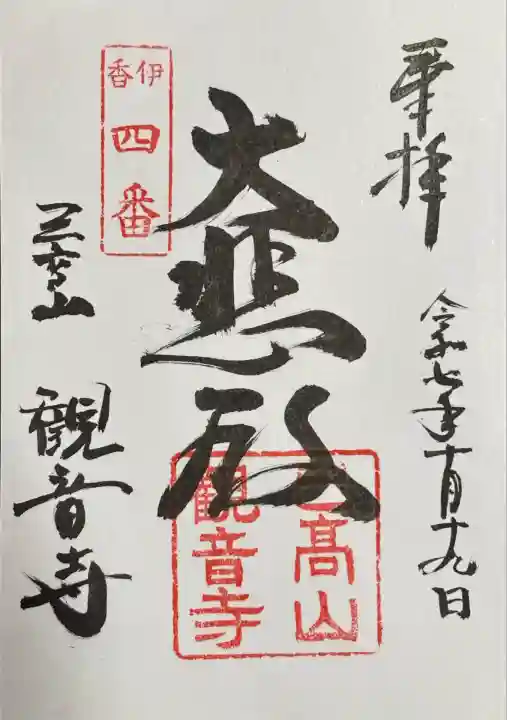 奉拝
令和七年十月十九日
伊香
四番
大悲殿
己高山
観音寺
己高山
観音寺